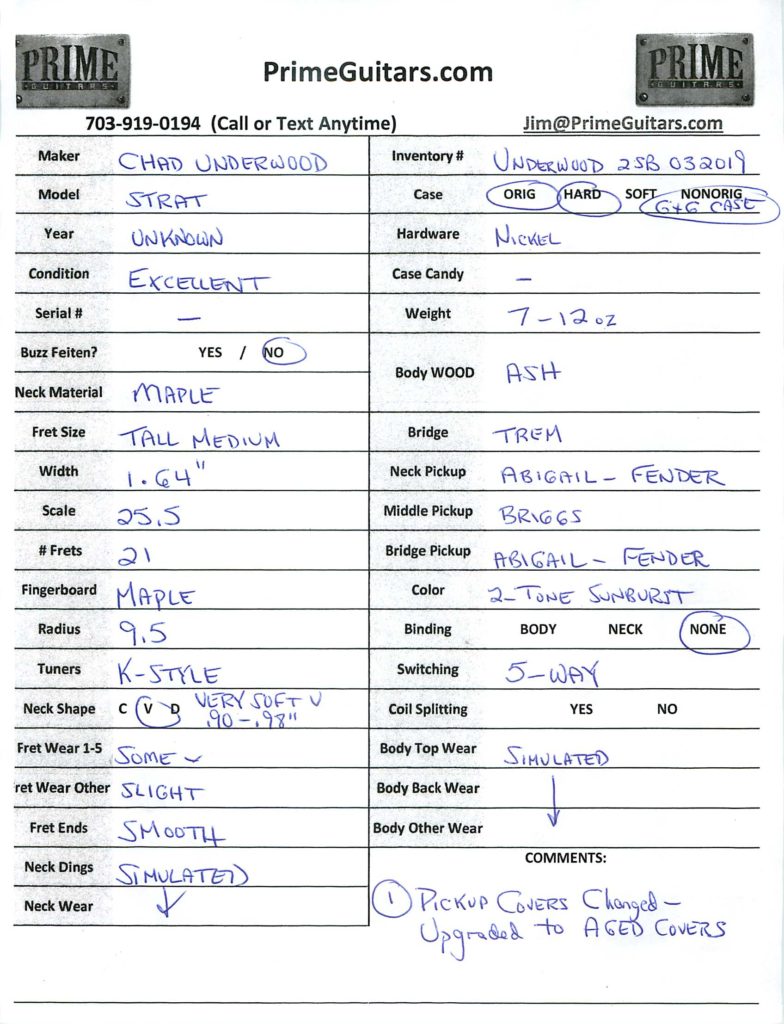 PRIME
GUITARS
PrimeGuitars.com
PRIME
GUITARS
703-919-0194 (Call or Text Anytime)
Jim@PrimeGuitars.com
Maker CHAD UNDERWOOD
Model STRAT
Year UNKNOWN
Condition EXCELLENT
Serial # —
Buzz Feiten? YES / NO
Neck Material MAPLE
Fret Size TALL MEDIUM
Width 1.64"
Scale 25.5
# Frets 21
Fingerboard MAPLE
Radius 9.5
Tuners K-STYLE
Neck Shape C V D VERY SOFT V
.90-.98"
Fret Wear 1-5 SOME
ret Wear Other SLIGHT
Fret Ends SMOOTH
Neck Dings SIMULATED
Neck Wear
Inventory # UNDERWOOD 2SB 032019
Case ORIG HARD SOFT NONORIG
G+G CASE
Hardware NICKEL
Case Candy —
Weight 7-12oz
Body WOOD ASH
Bridge TREM
Neck Pickup ABIGAIL - FENDER
Middle Pickup BRIGGS
Bridge Pickup ABIGAIL - FENDER
Color 2-TONE SUNBURST
Binding BODY NECK NONE
Switching 5-WAY
Coil Splitting YES NO
Body Top Wear SIMULATED
Body Back Wear
Body Other Wear
COMMENTS:
1 PICKUP COVERS Changed -
Upgraded to AGED COVERS